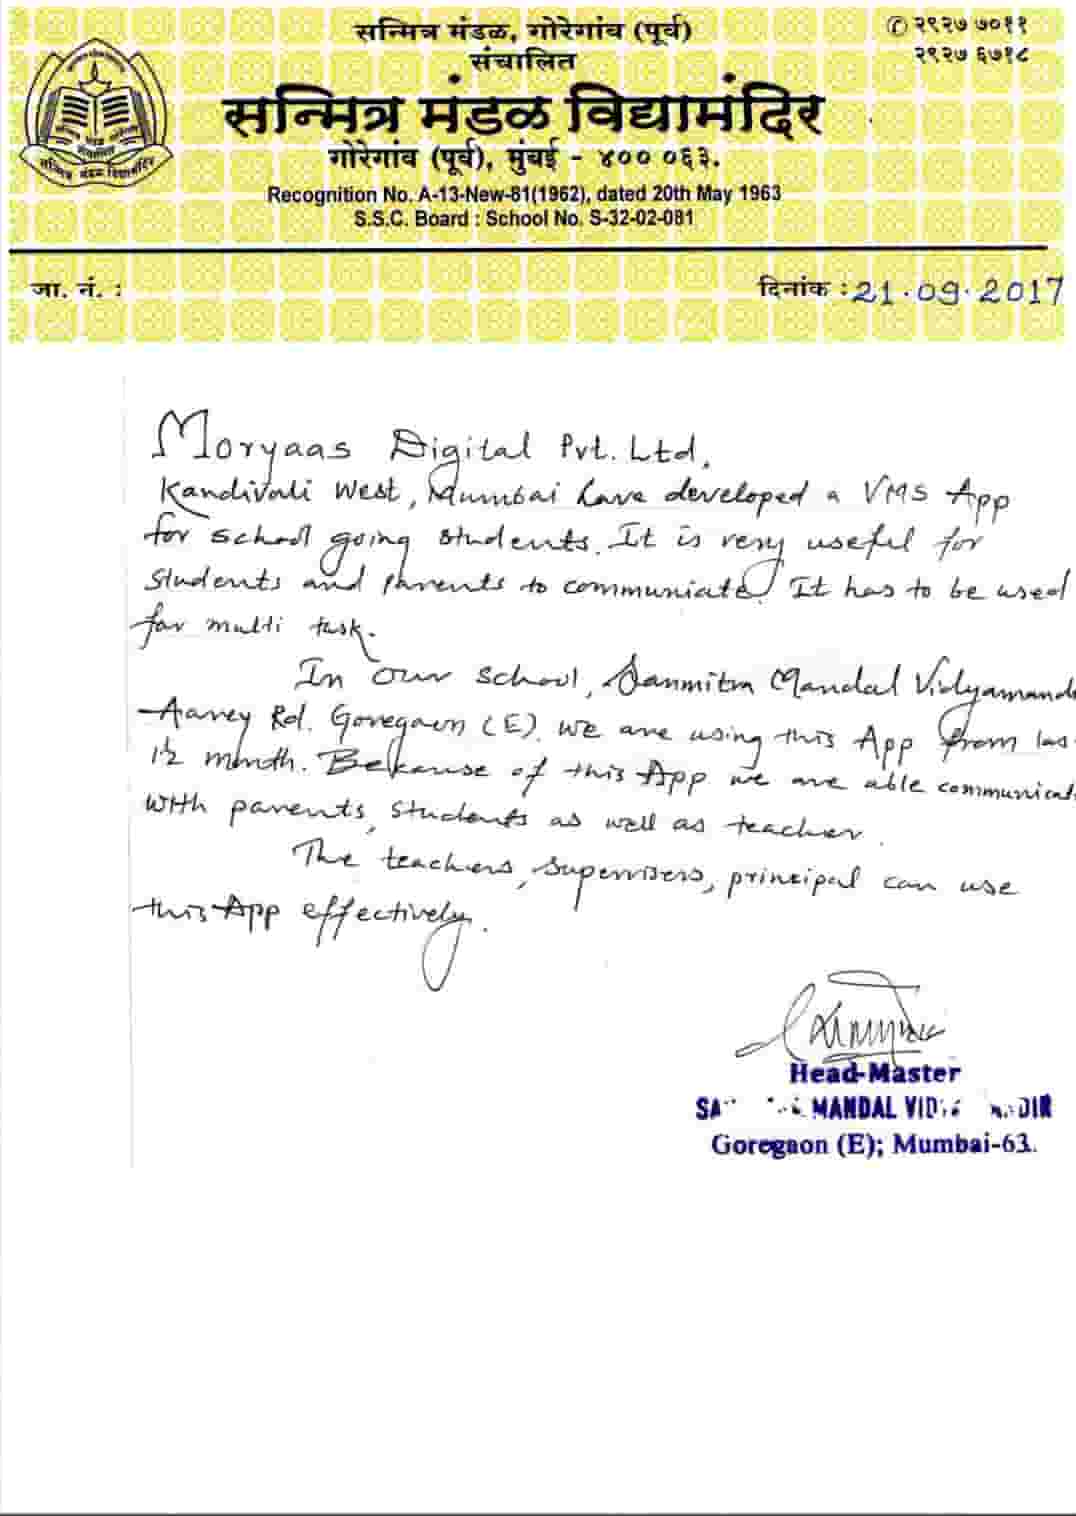 सन्मित्र मंडळ, गोरेगांव (पूर्व)
संचालित
✆ २९२७ ७०११
२९२७ ६७१८
सन्मित्र मंडळ विद्यामंदिर
गोरेगांव (पूर्व), मुंबई - ४०० ०६३.
Recognition No. A-13-New-81(1962), dated 20th May 1963
S.S.C. Board : School No. S-32-02-081
सन्मित्र मंडळ विद्यामंदिर
जा. नं. :
दिनांक : 21.09.2017
Moryaas Digital Pvt. Ltd,
Kandivali West, Mumbai have developed a VMS App
for school going students. It is very useful for
students and parents to communiate. It has to be used
for multi task.
In our school, Sanmitra Mandal Vidyamand
Aarey Rd. Goregaon (E). we are using this App from las
1½ month. Because of this App we are able communicat
with parents, students as well as teacher.
The teachers, supervisers, principal can use
this App effectively.
Head-Master
MANDAL
Goregaon (E); Mumbai-63.